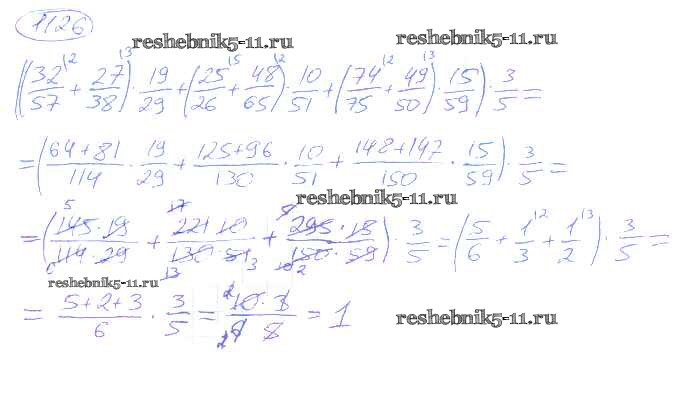 1126
reshebnik5-11.ru reshebnik5-11.ru
((32/57 |2 + 27/38 |3) · 19/29 + (25/26 |5 + 48/65 |2) · 10/51 + (74/75 |2 + 49/50 |3) · 15/59) · 3/5 =
= (64+81/114 · 19/29 + 125+96/130 · 10/51 + 148+147/150 · 15/59) · 3/5 =
reshebnik5-11.ru
= (145·19/114·29 + 221·10/130·51 + 295·15/150·59) · 3/5 = (5/6 + 1/3 |2 + 1/2 |3) · 3/5 =
reshebnik5-11.ru
= 5+2+3/6 · 3/5 = 10·3/6·5 = 1
reshebnik5-11.ru